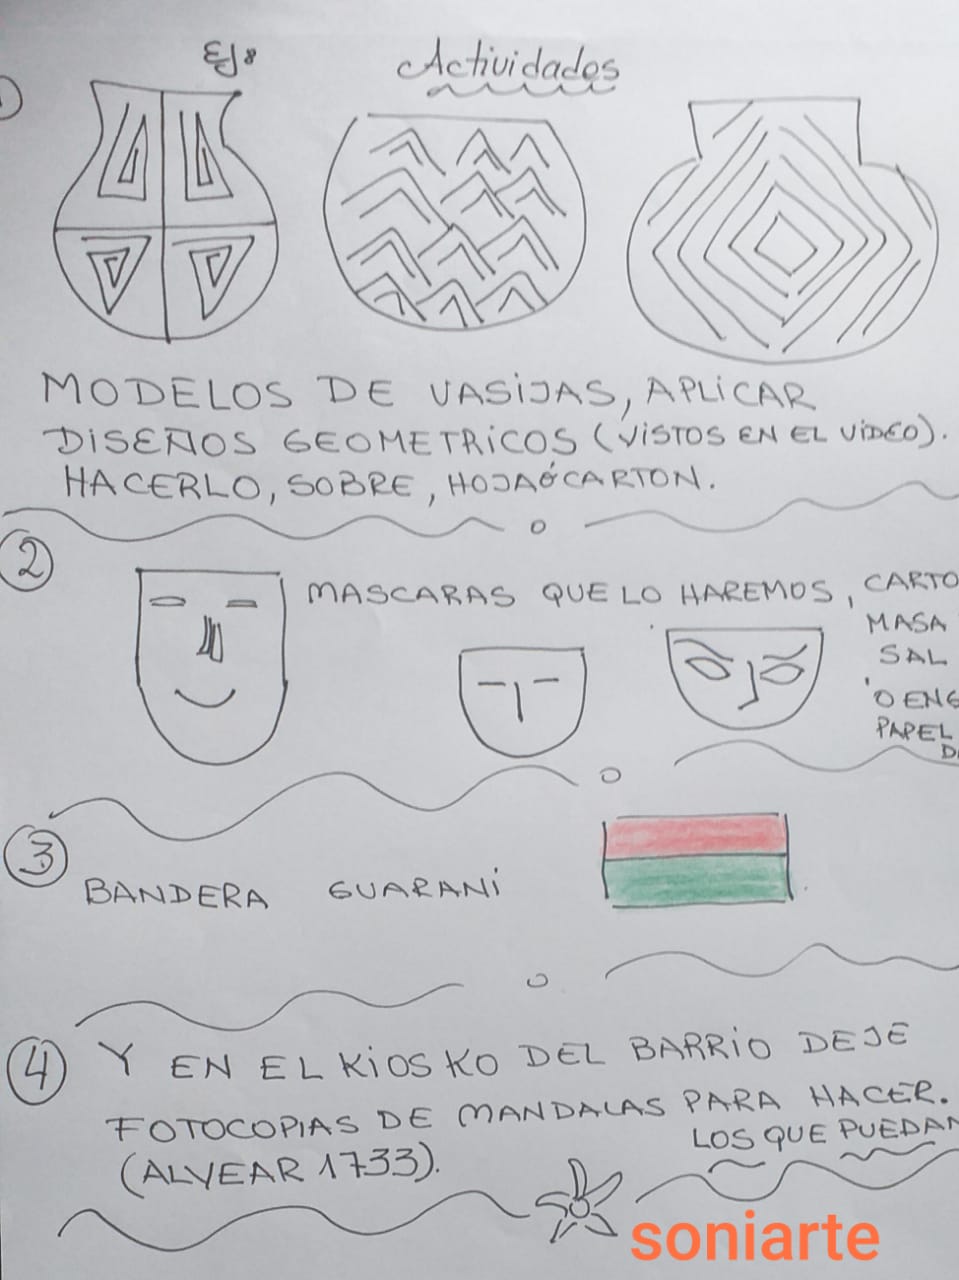 Ej:
Actividades
1
MODELOS DE VASIJAS, APLICAR
DISEÑOS GEOMETRICOS (VISTOS EN EL VIDEO).
HACERLO, SOBRE, HOJA Ó CARTON.
2
MASCARAS QUE LO HAREMOS, CARTO
MASA
SAL
'O ENG
PAPEL
D
3
BANDERA GUARANI
4
Y EN EL KIOSKO DEL BARRIO DEJE
FOTOCOPIAS DE MANDALAS PARA HACER.
LOS QUE PUEDAN
(ALVEAR 1733).
soniarte